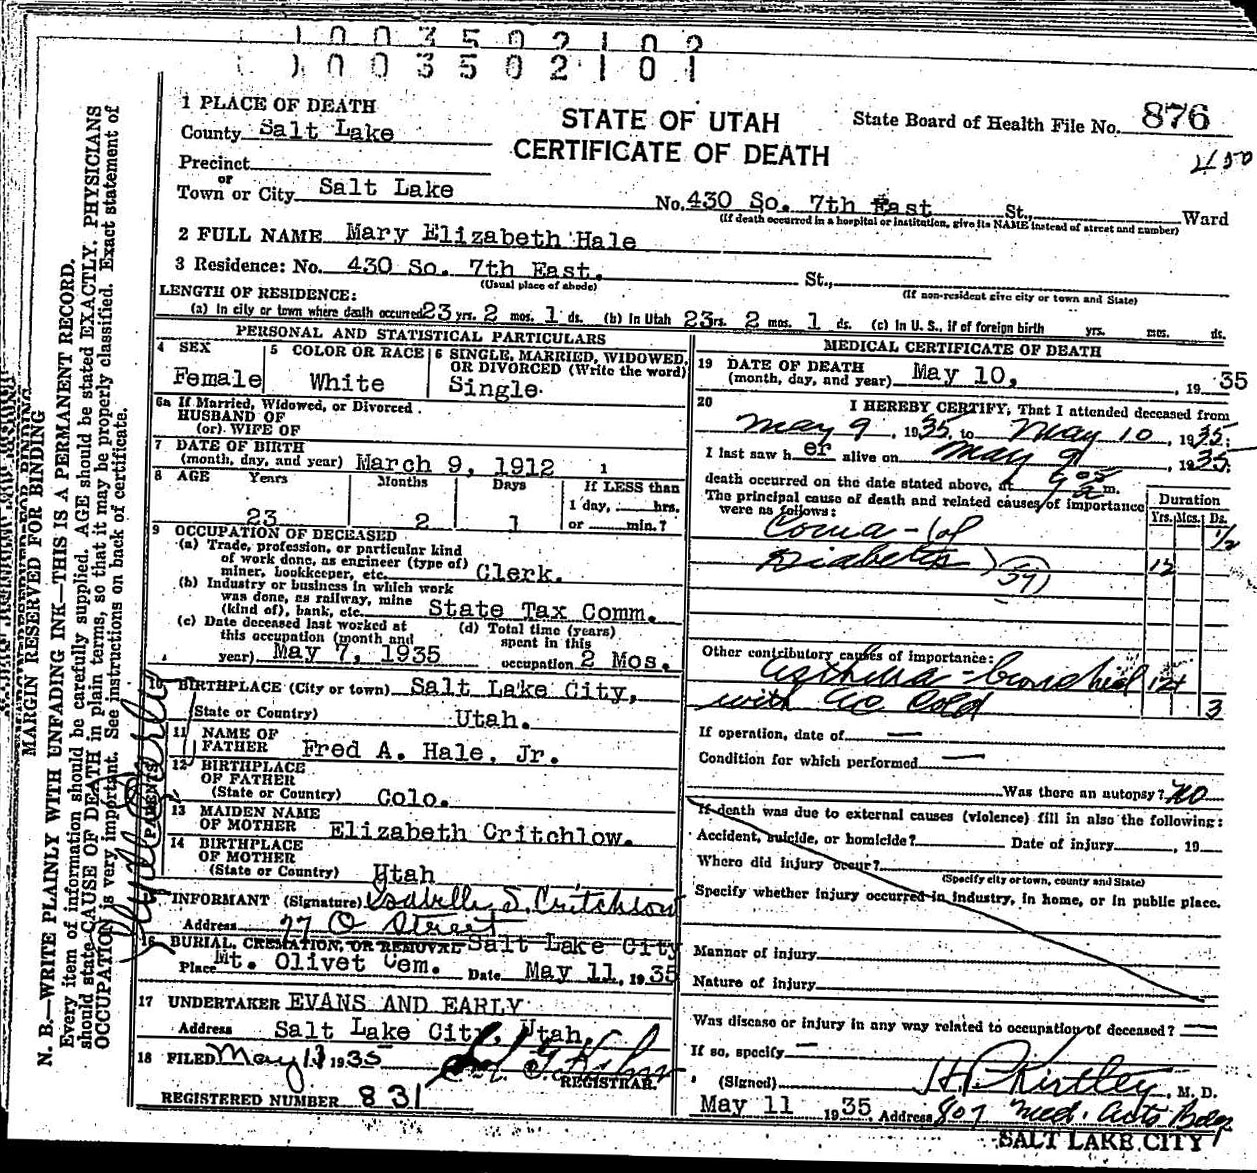 1 0 0 3 5 0 2 1 0 2
1 0 0 3 5 0 2 1 0 1
1 PLACE OF DEATH
County Salt Lake
Precinct
or
Town or City Salt Lake
STATE OF UTAH
CERTIFICATE OF DEATH
State Board of Health File No. 876
450
No. 430 So. 7th East St., Ward
(If death occurred in a hospital or institution, give its NAME instead of street and number)
2 FULL NAME Mary Elizabeth Hale
3 Residence: No. 430 So. 7th East. St.,
(Usual place of abode) (If non-resident give city or town and State)
LENGTH OF RESIDENCE:
(a) In city or town where death occurred 23 yrs. 2 mos. 1 ds. (b) In Utah 23 rs. 2 mos. 1 ds. (c) In U. S., if of foreign birth yrs. mos. ds.
PERSONAL AND STATISTICAL PARTICULARS
4 SEX
Female
5 COLOR OR RACE
White
6 SINGLE, MARRIED, WIDOWED, OR DIVORCED (Write the word)
Single.
6a If Married, Widowed, or Divorced
HUSBAND OF
(or) WIFE OF
7 DATE OF BIRTH
(month, day, and year) March 9, 1912
8 AGE Years Months Days If LESS than
1 day, hrs.
23 2 1 or min.?
9 OCCUPATION OF DECEASED
(a) Trade, profession, or particular kind
of work done, as engineer (type of)
miner, bookkeeper, etc. Clerk.
(b) Industry or business in which work
was done, as railway, mine
(kind of), bank, etc. State Tax Comm.
(c) Date deceased last worked at
this occupation (month and
year) May 7, 1935
(d) Total time (years)
spent in this
occupation 2 Mos.
10 BIRTHPLACE (City or town) Salt Lake City,
State or Country) Utah.
PARENTS
11 NAME OF
FATHER Fred A. Hale, Jr.
12 BIRTHPLACE
OF FATHER
(State or Country) Colo.
13 MAIDEN NAME
OF MOTHER Elizabeth Critchlow.
14 BIRTHPLACE
OF MOTHER
(State or Country) Utah
15 INFORMANT (Signature) Isabelle S. Critchlow
Address 77 O Street
16 BURIAL, CREMATION, OR REMOVAL Salt Lake City
Place Mt. Olivet Cem. Date May 11, 1935
17 UNDERTAKER EVANS AND EARLY
Address Salt Lake City, Utah.
18 FILED May 13 1935
REGISTRAR.
REGISTERED NUMBER 831
MEDICAL CERTIFICATE OF DEATH
19 DATE OF DEATH
(month, day, and year) May 10, , 19 35
20 I HEREBY CERTIFY, That I attended deceased from
May 9, 1935, to May 10, 1935;
I last saw h er alive on May 9, 1935;
death occurred on the date stated above, at a m.
The principal cause of death and related causes of importance
were as follows:
Duration
Yrs. Mos. Ds.
Coma - (of 1/2
Diabetes) (59) 12
Other contributory causes of importance:
Asthma - bronchial 12+
with ac Cold 3
If operation, date of —
Condition for which performed —
Was there an autopsy? No
If death was due to external causes (violence) fill in also the following:
Accident, suicide, or homicide? Date of injury , 19
Where did injury occur?
(Specify city or town, county and State)
Specify whether injury occurred in industry, in home, or in public place.
Manner of injury
Nature of injury
Was disease or injury in any way related to occupation of deceased? —
If so, specify —
(Signed) H P Kirtley, M. D.
May 11 1935 Address 807 Med. Arts Bldg
SALT LAKE CITY
MARGIN RESERVED FOR BINDING
N. B.—WRITE PLAINLY WITH UNFADING INK—THIS IS A PERMANENT RECORD.
Every item of information should be carefully supplied. AGE should be stated EXACTLY. PHYSICIANS
should state CAUSE OF DEATH in plain terms, so that it may be properly classified. Exact statement of
OCCUPATION is very important. See instructions on back of certificate.